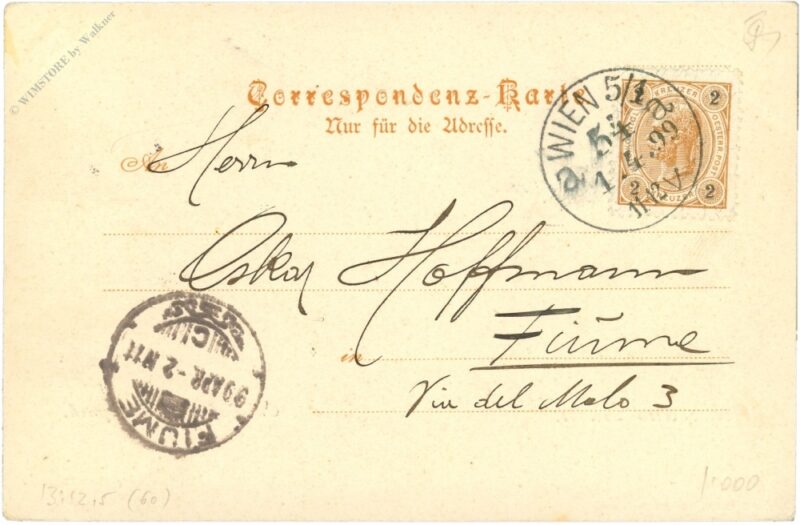 © WIMSTORE by Walkner
Correspondenz-Karte
Nur für die Adresse.
WIEN 5/1
54
a a
1.4.99
2 KREUZER 2
OESTERR. POST
2 2
An Herrn
Oskar Hoffmann
in Fiume
Via del Molo 3
FIUME
99 APR -2 N11
13.12.5 (60)
1.000